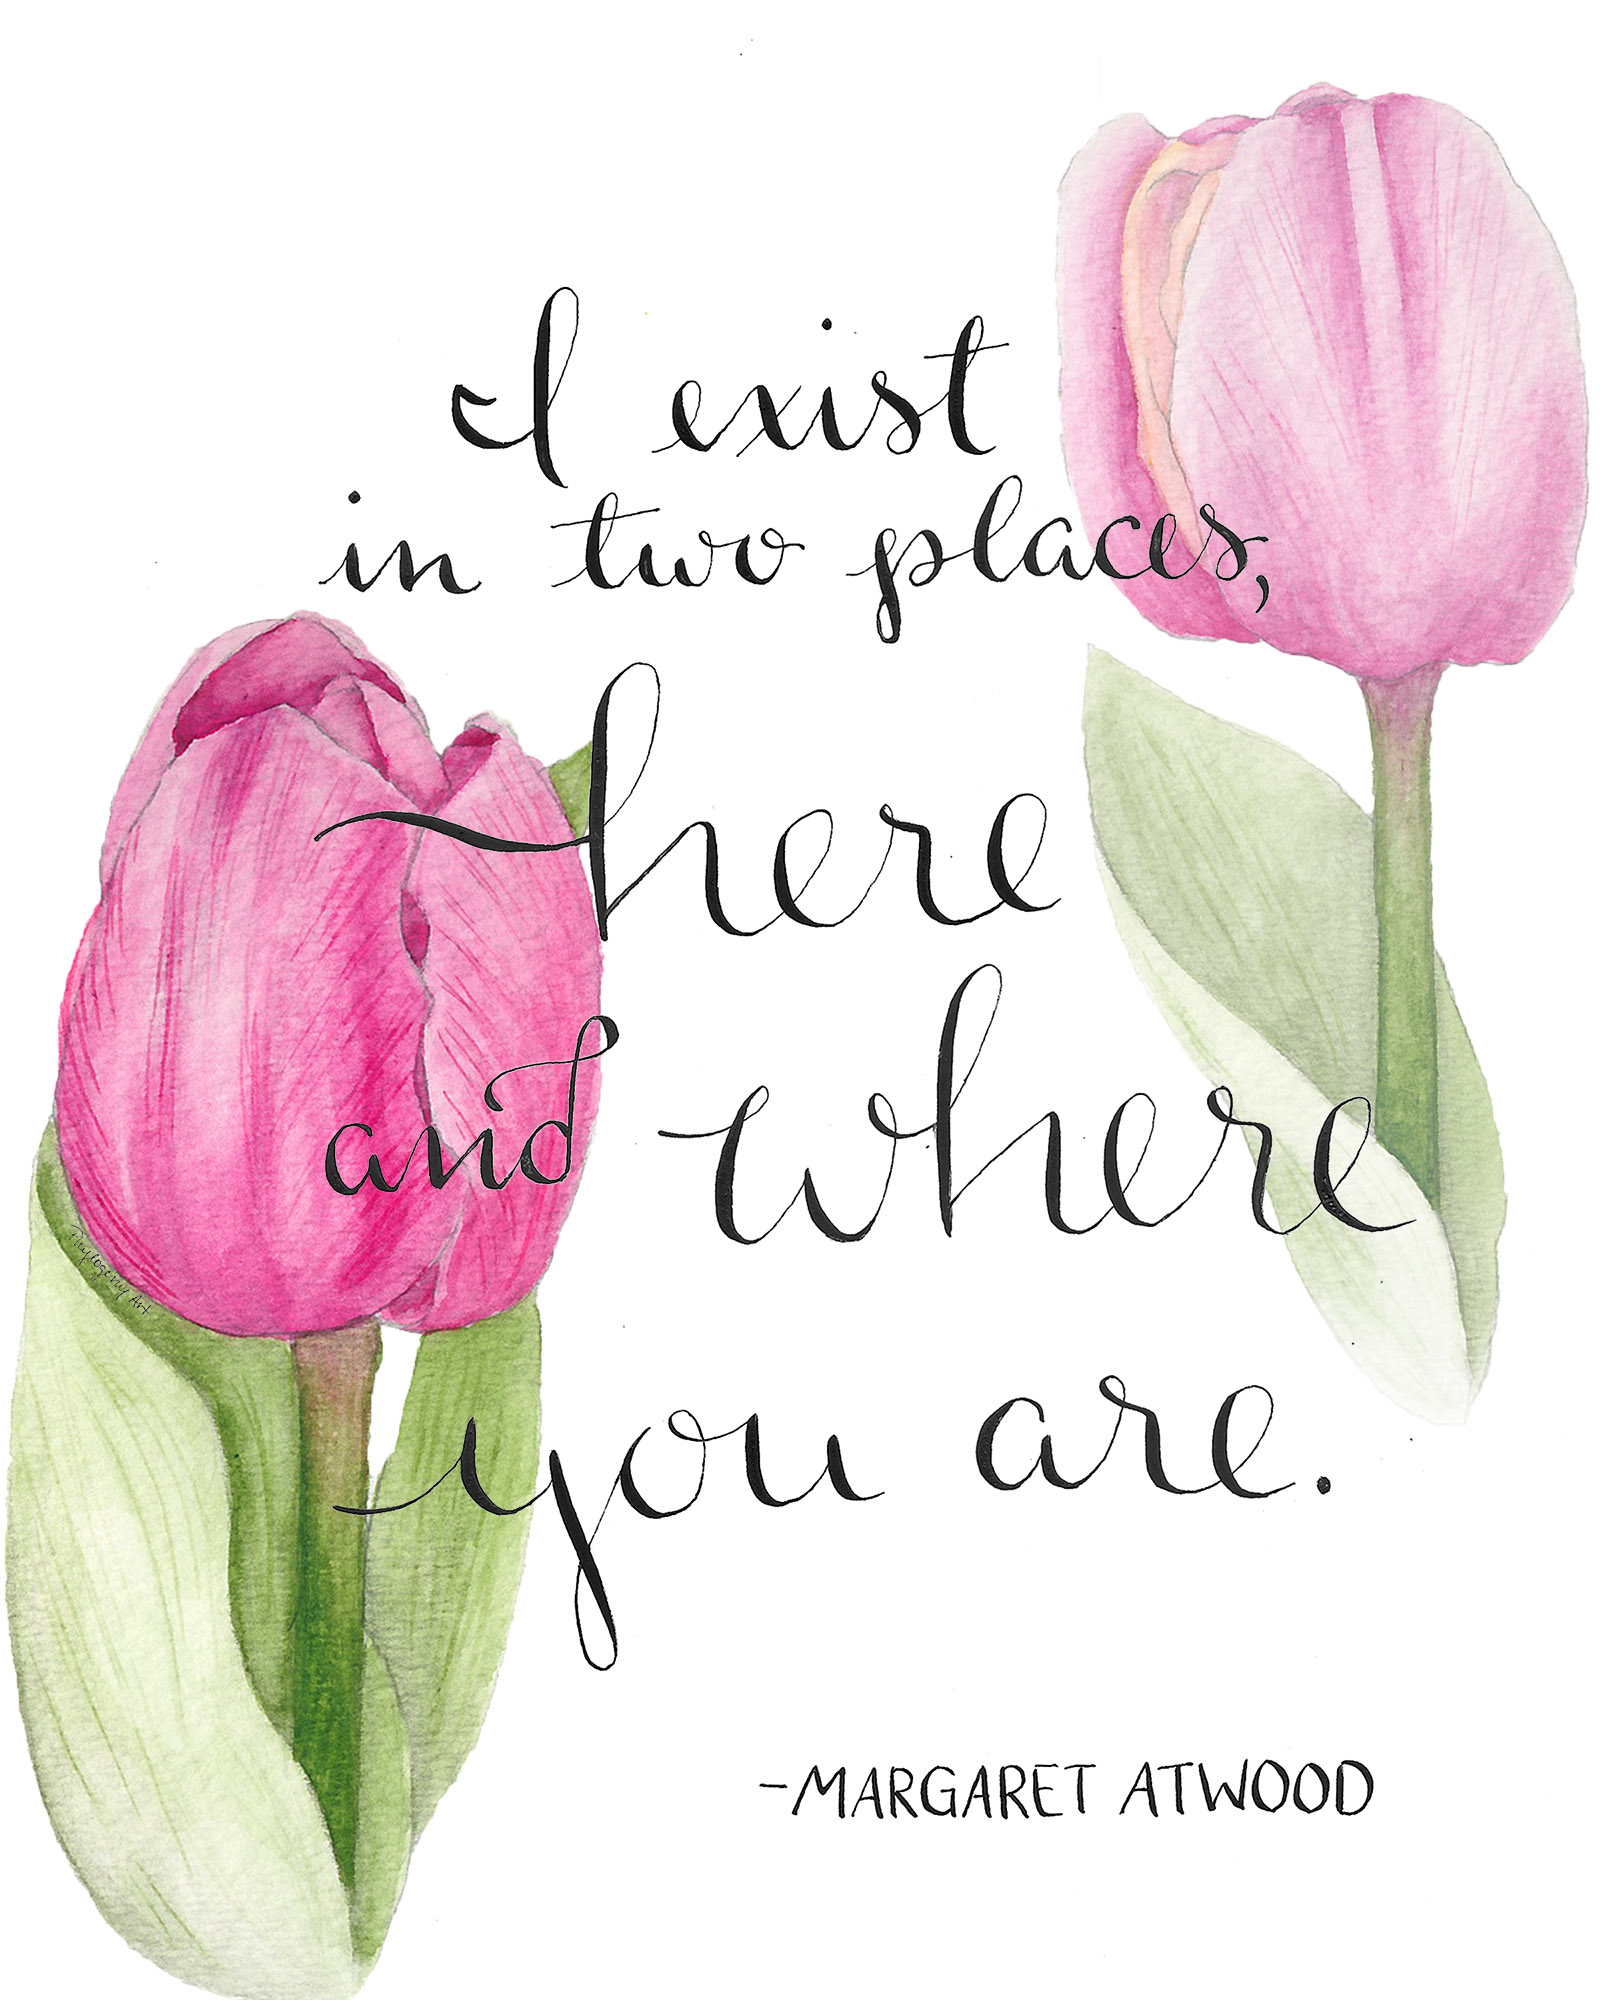 I exist
in two places,
here
and where
you are.
-MARGARET ATWOOD
Phylogeny Art